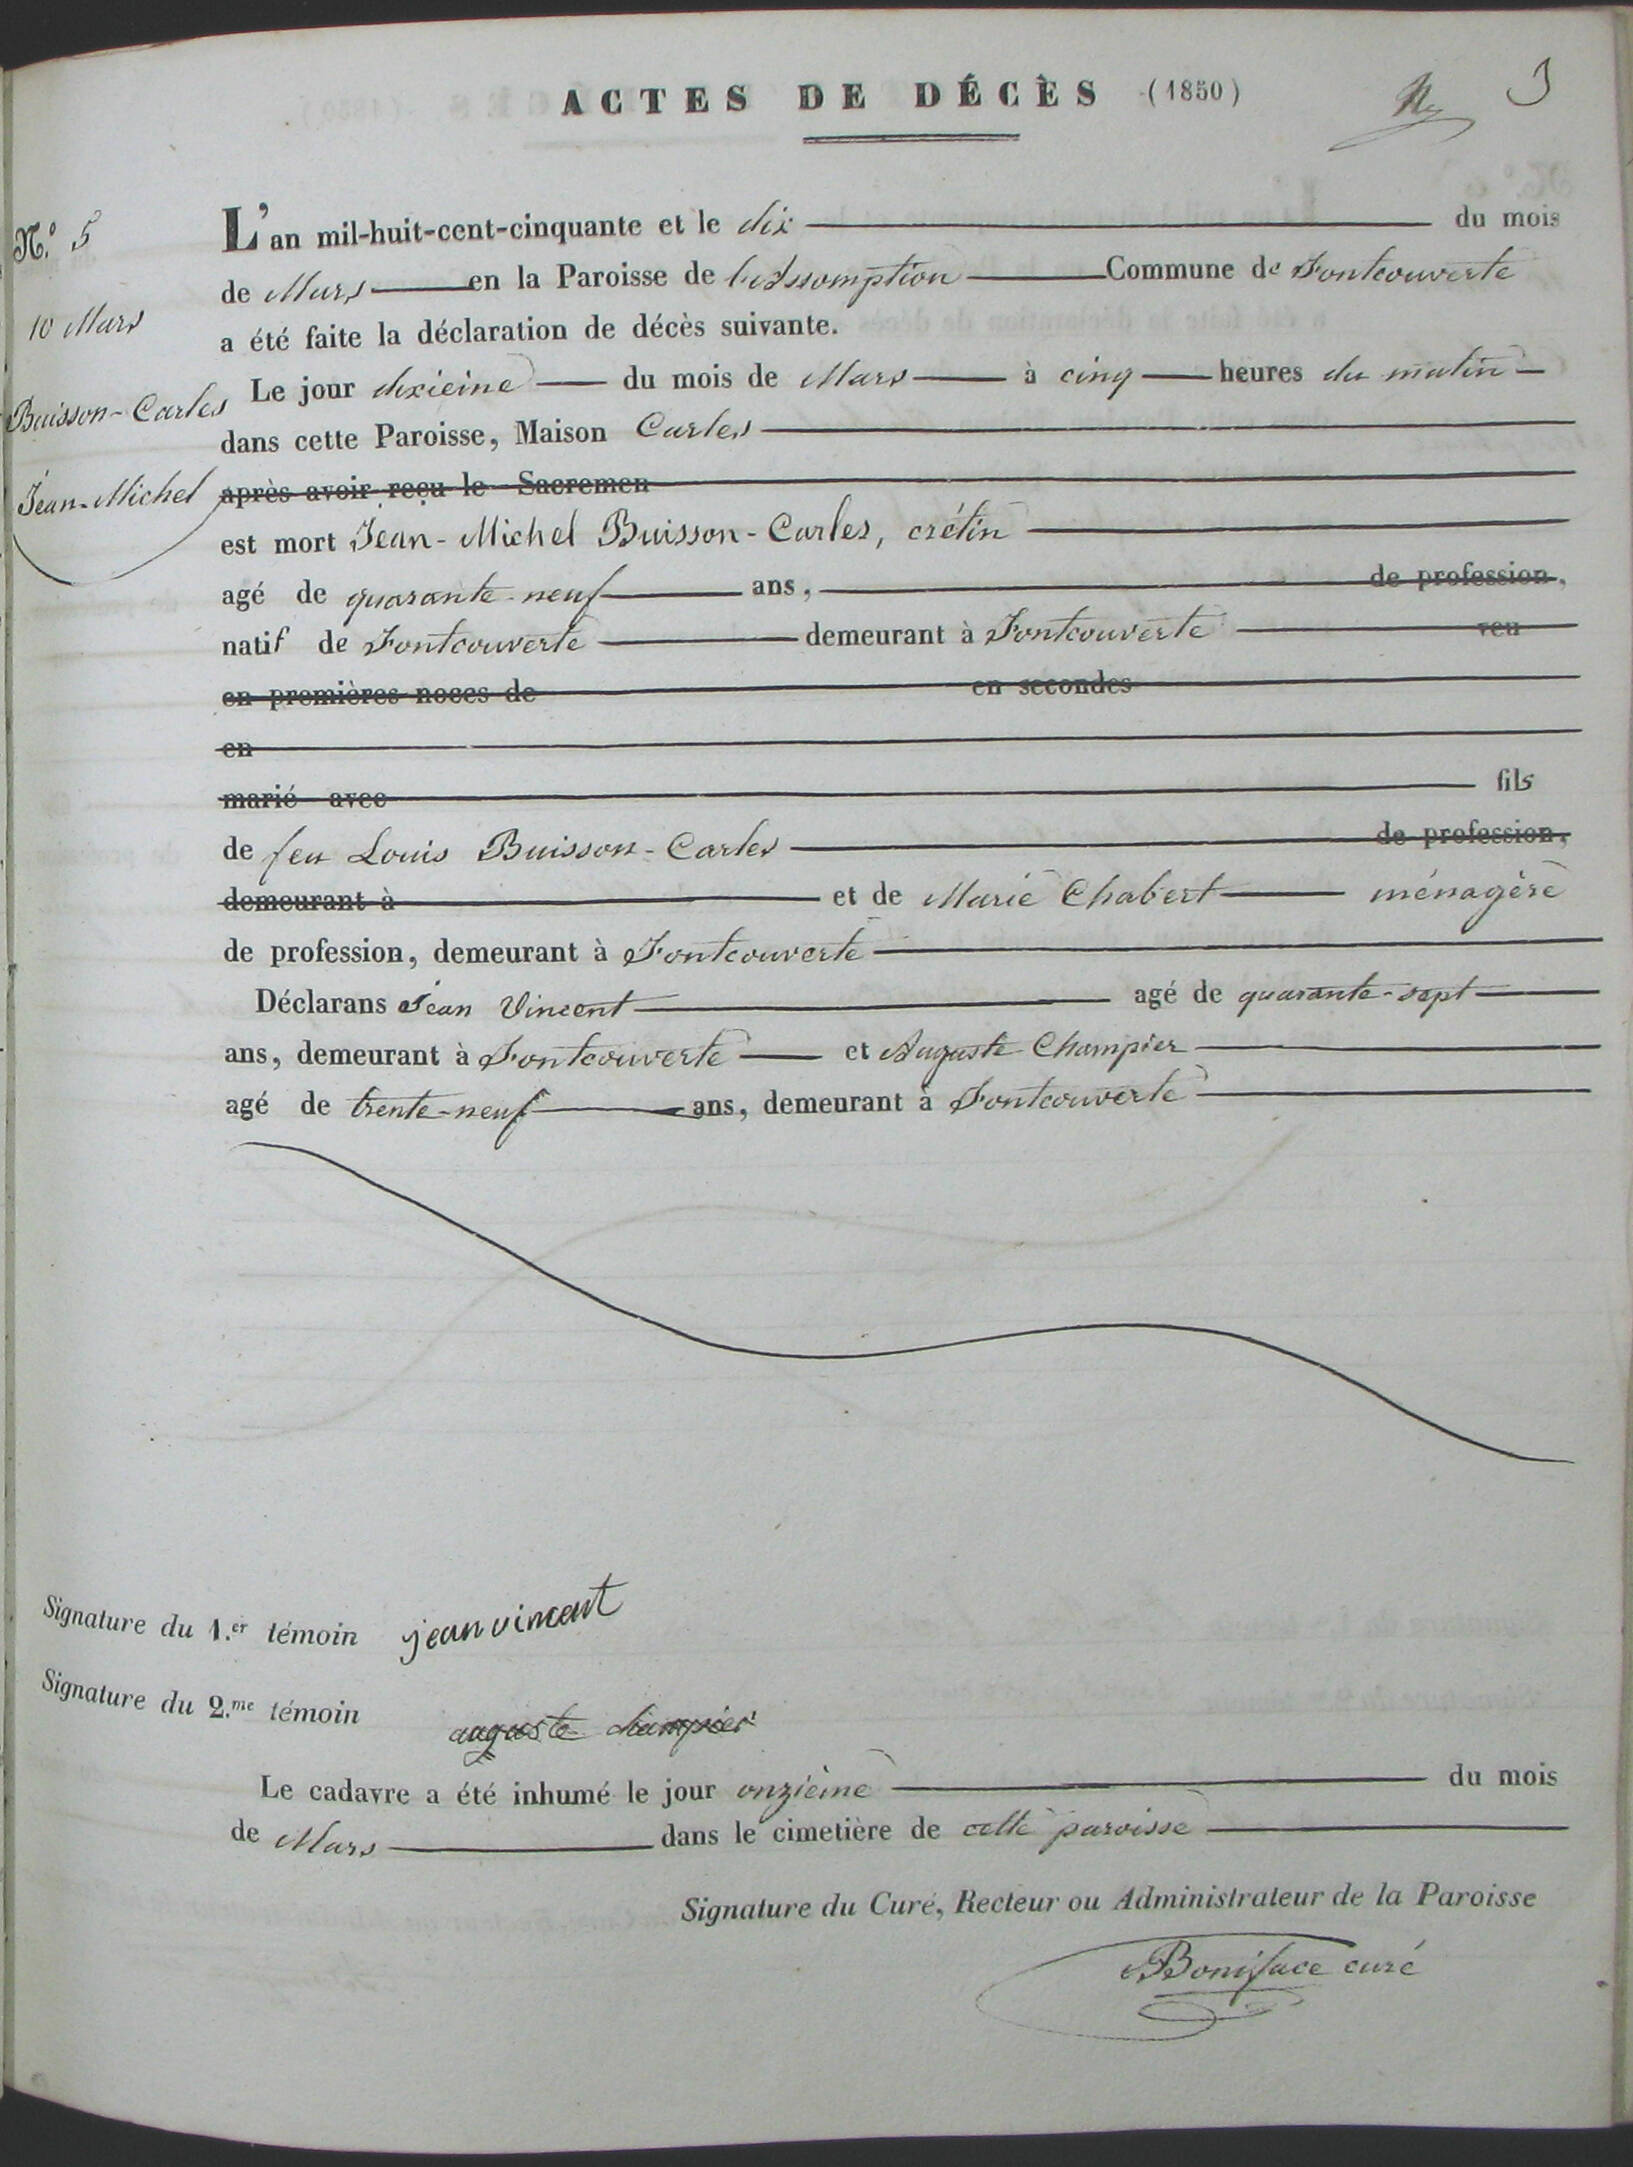 ACTES DE DÉCÈS (1850)
3
N.º 5
10 Mars
Buisson-Carles
Jean-Michel
L'an mil-huit-cent-cinquante et le dix du mois
de Mars en la Paroisse de l'Assomption Commune de Fontcouverte
a été faite la déclaration de décès suivante.
Le jour dixième du mois de Mars à cinq heures du matin
dans cette Paroisse, Maison Carles
après avoir reçu le Sacremen
est mort Jean-Michel Buisson-Carles, crétin
agé de quarante-neuf ans, de profession,
natif de Fontcouverte demeurant à Fontcouverte veu
en premières noces de en secondes
en
marié avec fils
de feu Louis Buisson-Carles de profession,
demeurant à et de Marie Chabert ménagère
de profession, demeurant à Fontcouverte
Déclarans Jean Vincent agé de quarante-sept
ans, demeurant à Fontcouverte et Auguste Champier
agé de trente-neuf ans, demeurant à Fontcouverte
Signature du 1.er témoin jean vincent
Signature du 2.me témoin
auguste champier
Le cadavre a été inhumé le jour onzième du mois
de Mars dans le cimetière de cette paroisse
Signature du Curé, Recteur ou Administrateur de la Paroisse
Boniface curé